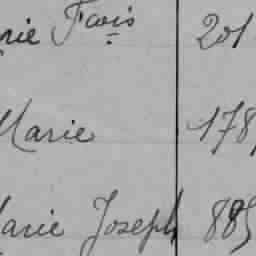 rie Fçois 201
Marie 178
Marie Joseph 885